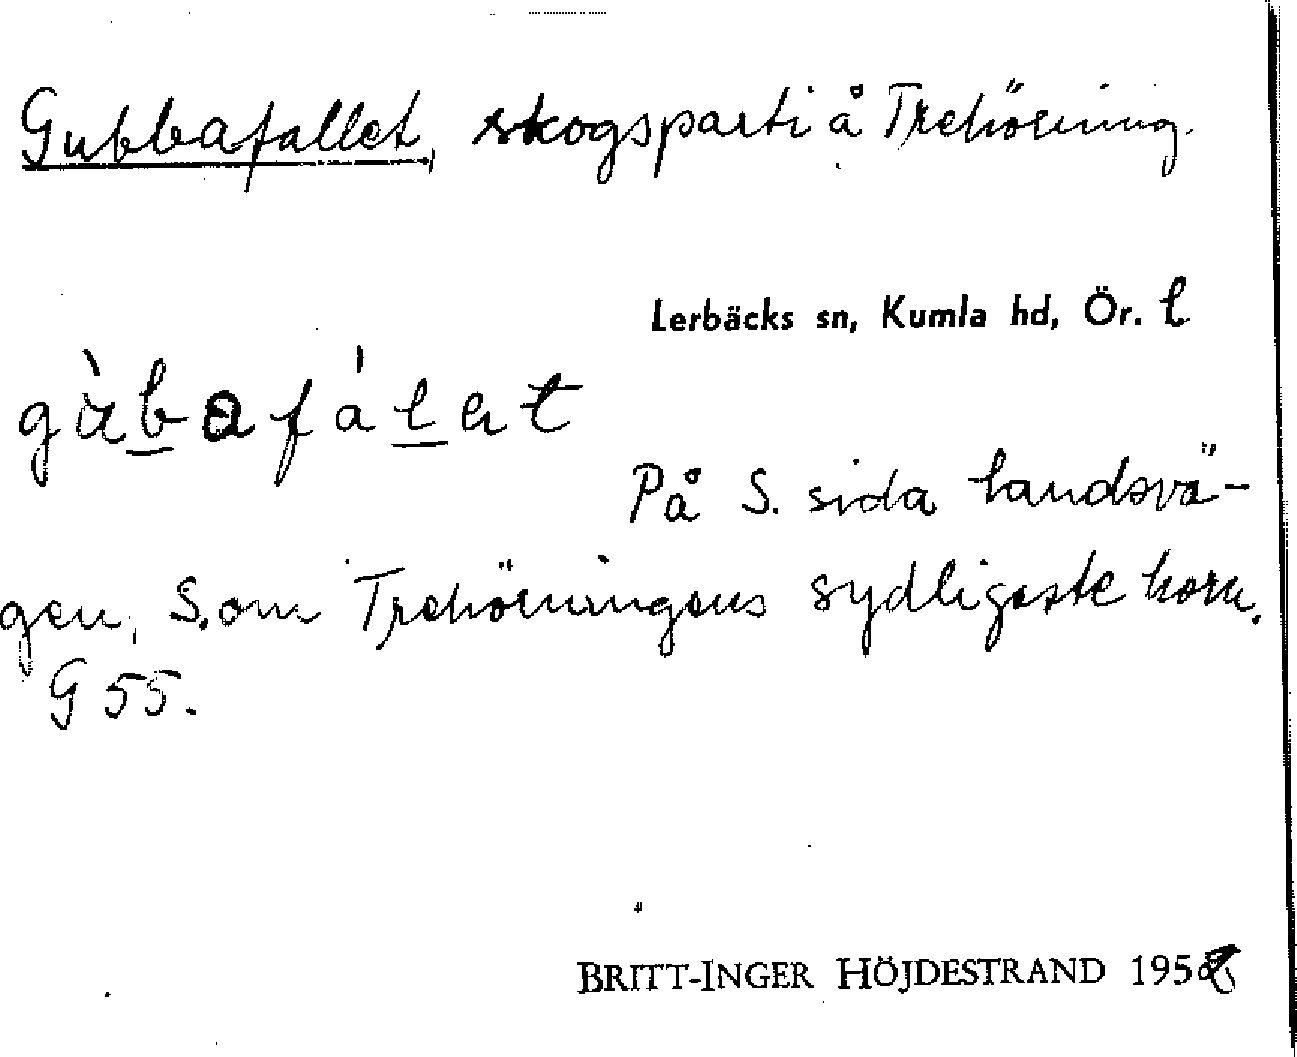 Gubbafallet, skogsparti å Trehörning.
Lerbäcks sn, Kumla hd, Ör. l
På S. sida landsvä-
gen, S.om Trehörningens sydligaste horn.
G 55.
BRITT-INGER HÖJDESTRAND